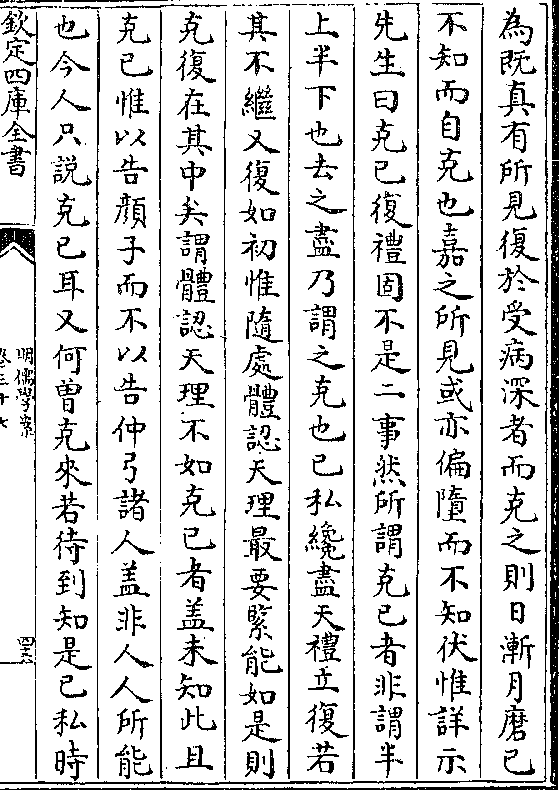 為既真有所見復於受病深者而克之則日漸月磨已
不知而自克也嘉之所見或亦偏墮而不知伏惟詳示
先生曰克已復禮固不是二事然所謂克已者非謂半
上半下也去之盡乃謂之克也已私纔盡天禮立復若
其不繼又復如初惟隨處體認天理最要緊能如是則
克復在其中矣謂體認天理不如克已者盖未知此且
克已惟以告顔子而不以告仲弓諸人盖非人人所能
也今人只説克已耳又何曽克來若待到知是已私時
欽定四庫全書
明儒學案